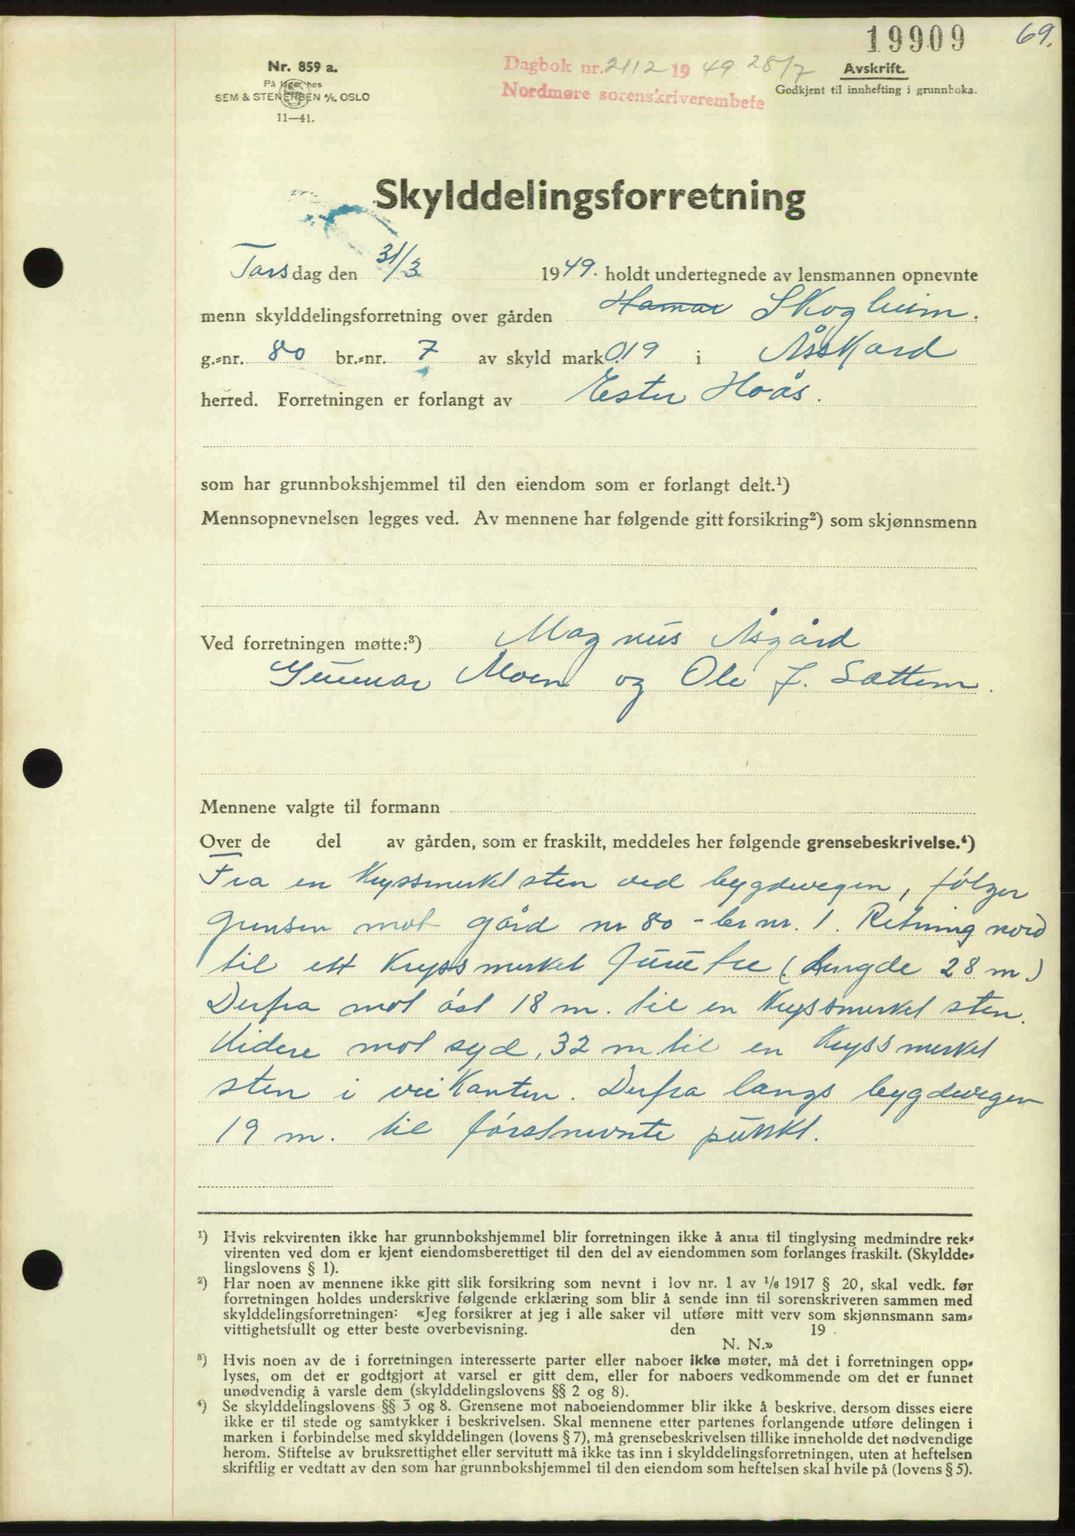 19909
69.
Nr. 859 a.
På lager hos
SEM & STENERSEN A/S, OSLO
11—41.
Dagbok nr. 2112 1949 28/7
Nordmøre sorenskriverembete
Avskrift.
Godkjent til innhefting i grunnboka.
Skylddelingsforretning
Torsdag den 31/3 1949. holdt undertegnede av lensmannen opnevnte
menn skylddelingsforretning over gården Hamar Skogheim.
g.-nr. 80 br.-nr. 7 av skyld mark 0.19 i Åsskard
herred. Forretningen er forlangt av Ester Hoås.
som har grunnbokshjemmel til den eiendom som er forlangt delt.¹)
Mennsopnevnelsen legges ved. Av mennene har følgende gitt forsikring²) som skjønnsmenn
Ved forretningen møtte:³) Magnus Åsgård
Gunnar Moen og Ole J. Sættem.
Mennene valgte til formann
Over de del av gården, som er fraskilt, meddeles her følgende grensebeskrivelse.⁴)
Fra en Kryssmerket sten ved bygdevegen, følger
grensen mot gård nr 80 - br nr. 1. Retning nord
til ett Kryssmerket furutre (Lengde 28 m.)
Derfra mot øst 18 m. til en Kryssmerket sten.
Videre mot syd, 32 m til en Kryssmerket
sten i veikanten. Derfra langs bygdevegen
19 m. til førstnevnte punkt.
¹) Hvis rekvirenten ikke har grunnbokshjemmel blir forretningen ikke å anta til tinglysing medmindre rek-
virenten ved dom er kjent eiendomsberettiget til den del av eiendommen som forlanges fraskilt. (Skyldde-
lingslovens § 1).
²) Har noen av mennene ikke gitt slik forsikring som nevnt i lov nr. 1 av 1/6 1917 § 20, skal vedk. før
forretningen holdes underskrive følgende erklæring som blir å sende inn til sorenskriveren sammen med
skylddelingsforretningen: «Jeg forsikrer at jeg i alle saker vil utføre mitt verv som skjønnsmann sam-
vittighetsfullt og etter beste overbevisning. den 19 .
N. N.»
³) Hvis noen av de i forretningen interesserte parter eller naboer ikke møter, må det i forretningen opp-
lyses, om det er godtgjort at varsel er gitt dem, eller for naboers vedkommende om det er funnet
unødvendig å varsle dem (skylddelingslovens §§ 2 og 8).
⁴) Se skylddelingslovens §§ 3 og 8. Grensene mot naboeiendommer blir ikke å beskrive, dersom disses eiere
ikke er til stede og samtykker i beskrivelsen. Skal mennene etter partenes forlangende utføre delingen i
marken i forbindelse med skylddelingen (lovens § 7), må grensebeskrivelsen tillike inneholde det nødvendige
herom. Stiftelse av bruksrettighet eller servitutt må ikke tas inn i skylddelingsforretningen, uten at heftelsen
skriftlig er vedtatt av den som har grunnbokshjemmel til den eiendom som heftelsen skal hvile på (lovens § 5).